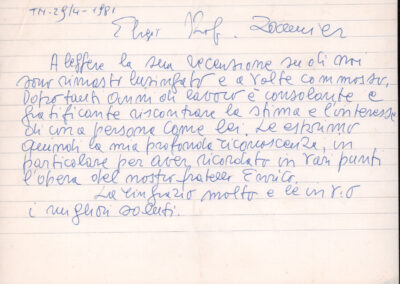 TN-29/4-1981
Egregio Prof. Zoderer
A leggere la sua recensione su di noi
sono rimasto lusingato e a volte commosso.
Dopo tanti anni di lavoro è consolante e
gratificante riscontrare la stima e l'interesse
di una persona come lei. Le esprimo
quindi la mia profonda riconoscenza, in
particolare per aver ricordato in vari punti
l'opera del nostro fratello Enrico.
La ringrazio molto e le invio
i migliori saluti.